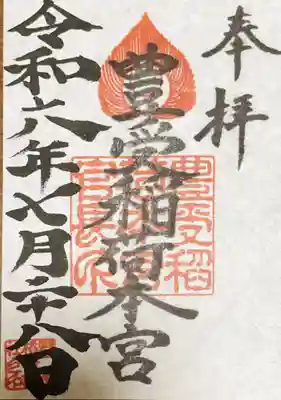 奉拝
豊受稲荷本宮
令和六年七月二十八日
豊受稲